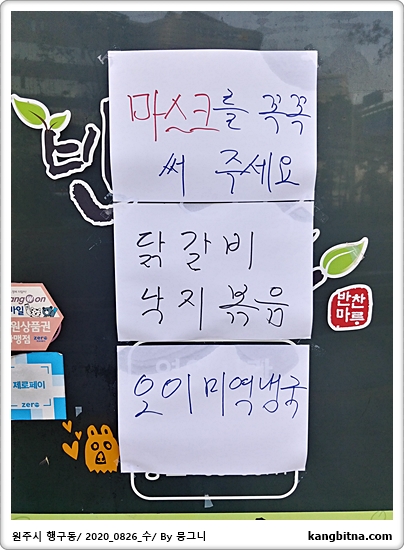 마스크를 꼭꼭
써 주세요
닭갈비
낙지볶음
반찬
마루
오이미역냉국
제로페이
zero
원주시 행구동/ 2020_0826_수/ By 뭉그니
kangbitna.com